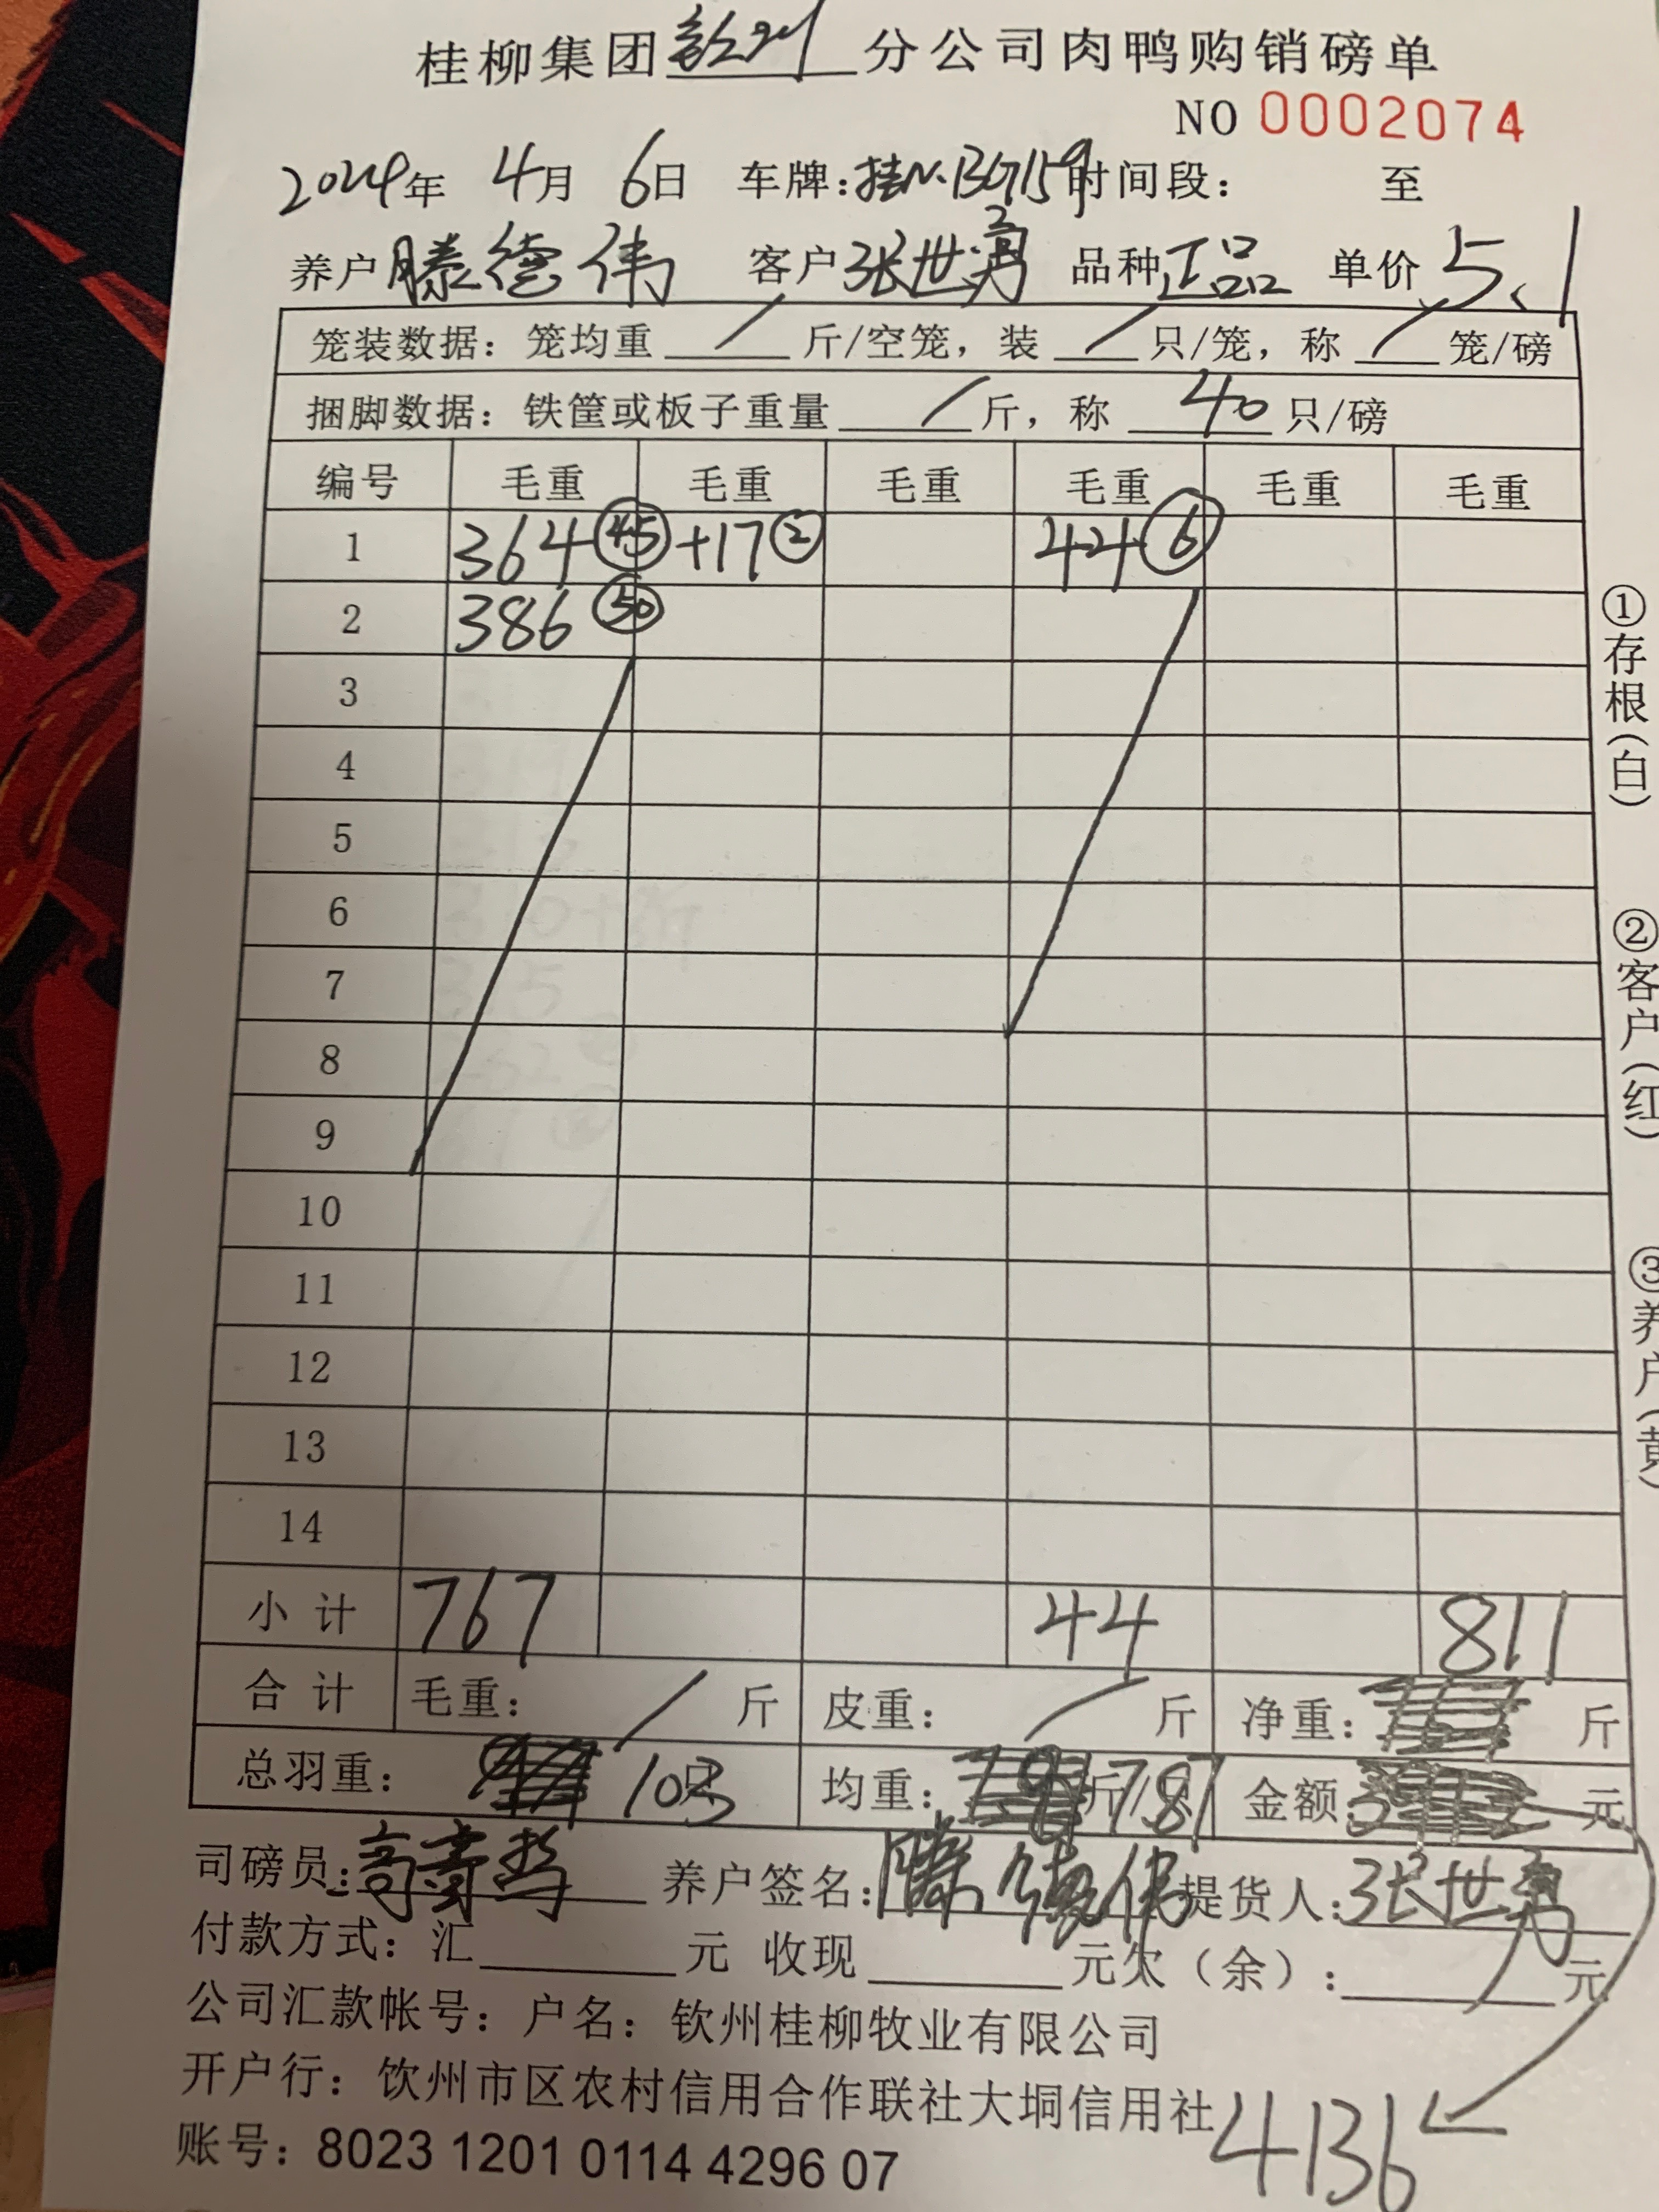 桂柳集团钦州分公司肉鸭购销磅单
NO 0002074
2024年 4月 6日 车牌:桂N·BG159 时间段: 至
养户 滕德伟 客户 张世勇 品种 正品 单价 5.1
笼装数据: 笼均重 / 斤/空笼, 装 / 只/笼, 称 / 笼/磅
捆脚数据: 铁筐或板子重量 / 斤, 称 40 只/磅
编号 毛重 毛重 毛重 毛重 毛重 毛重
1 364 45 +17 2 44 6
2 386 50
3
4
5
6
7
8
9
10
11
12
13
14
小计 767 44 811
合计 毛重: / 斤 皮重: / 斤 净重: 斤
总羽重: 103 只 均重: 7.87 斤/ 金额: 元
司磅员: 养户签名: 滕德伟 提货人: 张世勇
付款方式: 汇 元 收现 元 欠(余): 元
公司汇款帐号: 户名: 钦州桂柳牧业有限公司
开户行: 钦州市区农村信用合作联社大垌信用社
账号: 8023 1201 0114 4296 07
4136
①存根(白)
②客户(红)
③养户(黄)